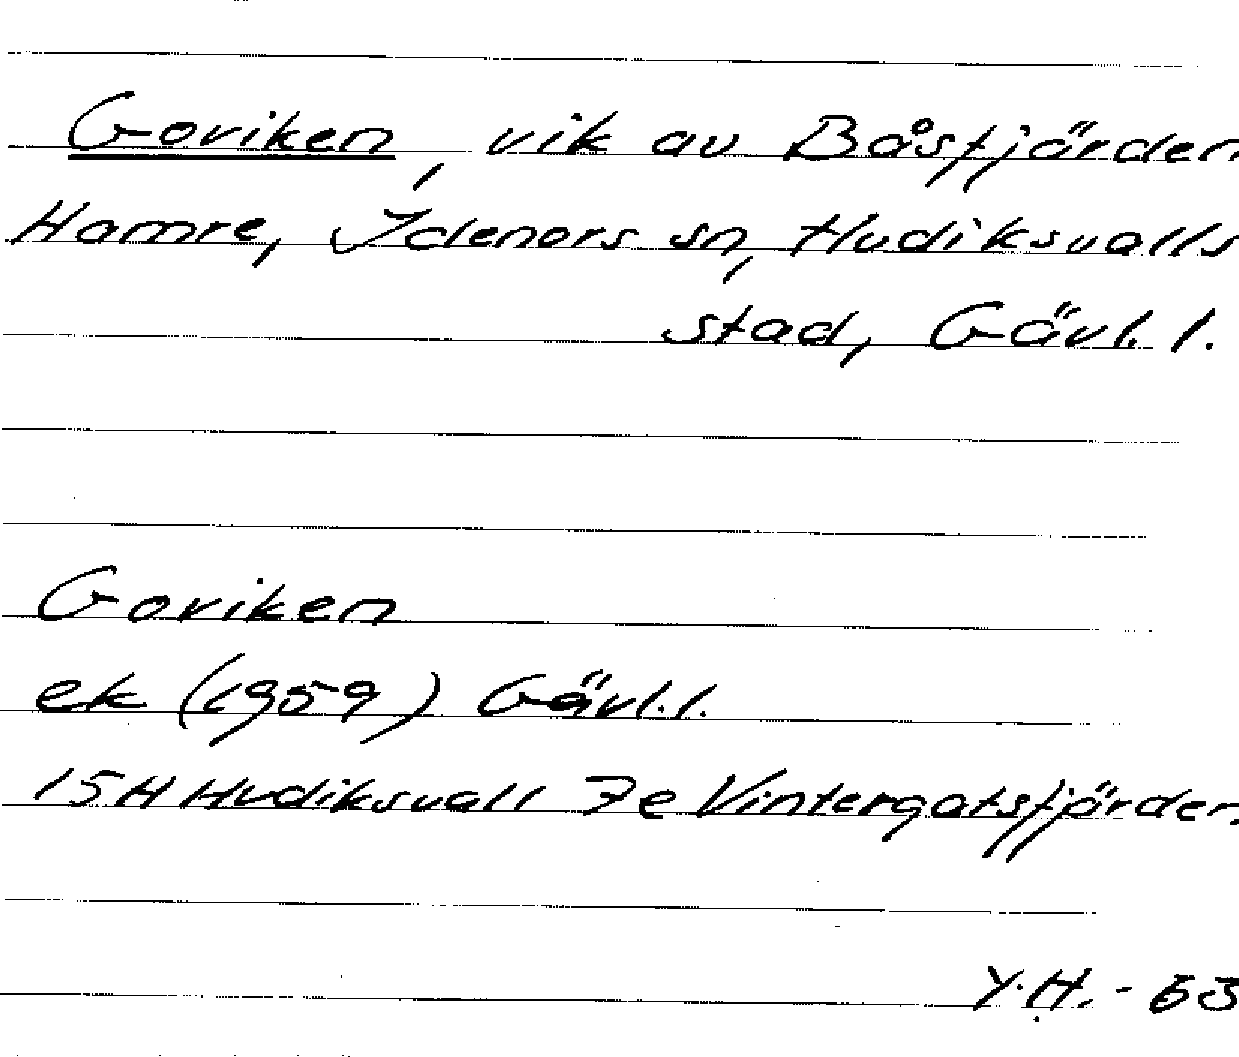 Goviken, vik av Båsfjärden
Hamre, Idenors sn, Hudiksvalls
stad, Gävl. l.
Goviken
ek (1959) Gävl. l.
15H Hudiksvall 7e Vintergatsfjärden
Y.H. - 63